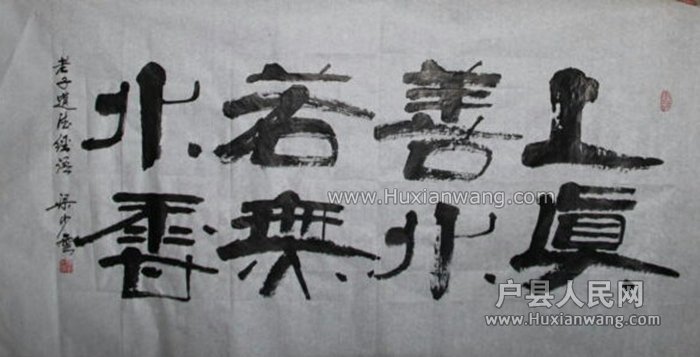 上善若水
真水無香
老子道德經語
www.Huxianwang.com
户县人民网
www.Huxianwang.com